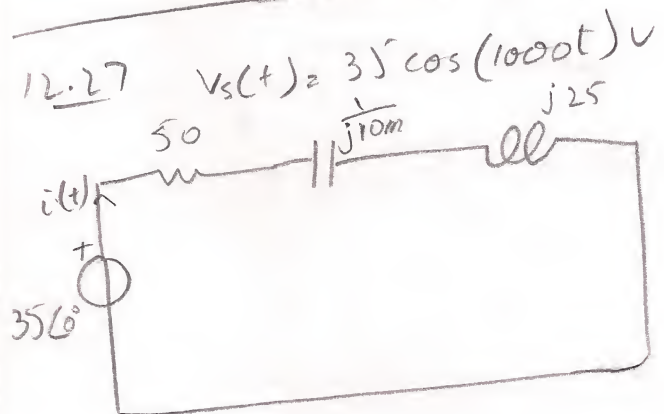 12.27 Vs(t) = 35 cos(1000t) V
50 1/j10m j25
i(t)
+
35∠0°